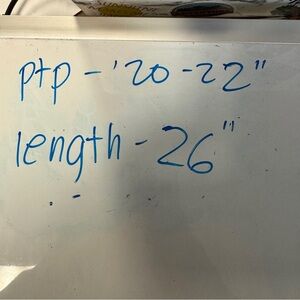 ptp - '20-22"
length - 26"